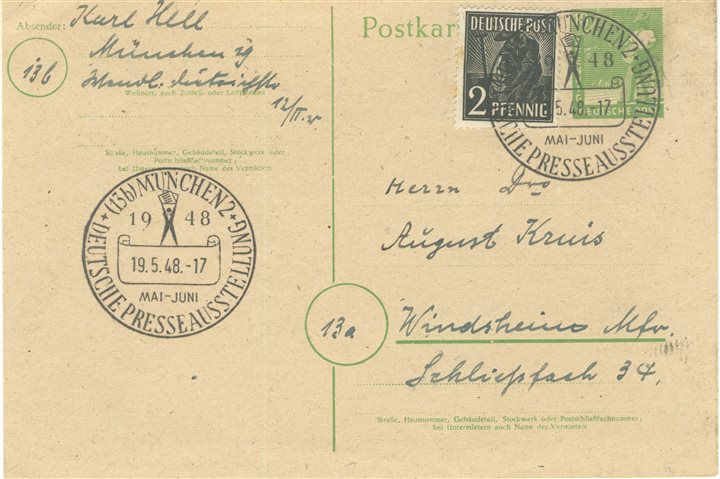 Absender: Karl Hell
München 19
13b
Wohnort, auch Zustell- oder Leitpostamt
12/II. r
Straße, Hausnummer, Gebäudeteil, Stockwerk oder
Postschließfachnummer;
bei Untermietern auch Name des Vermieters
(13b) MÜNCHEN 2
19 48
19.5.48.-17
MAI-JUNI
DEUTSCHE PRESSEAUSSTELLUNG
Postkar
DEUTSCHE POST
2 PFENNIG
MÜNCHEN 2
9 48
5.48.-17
MAI-JUNI
DEUTSCHE PRESSEAUSSTELLUNG
DEUTSCHE POST
Herrn
August Kruis
13a
Windsheim Mfr.
Schließfach 34.
Straße, Hausnummer, Gebäudeteil, Stockwerk oder Postschließfachnummer;
bei Untermietern auch Name des Vermieters